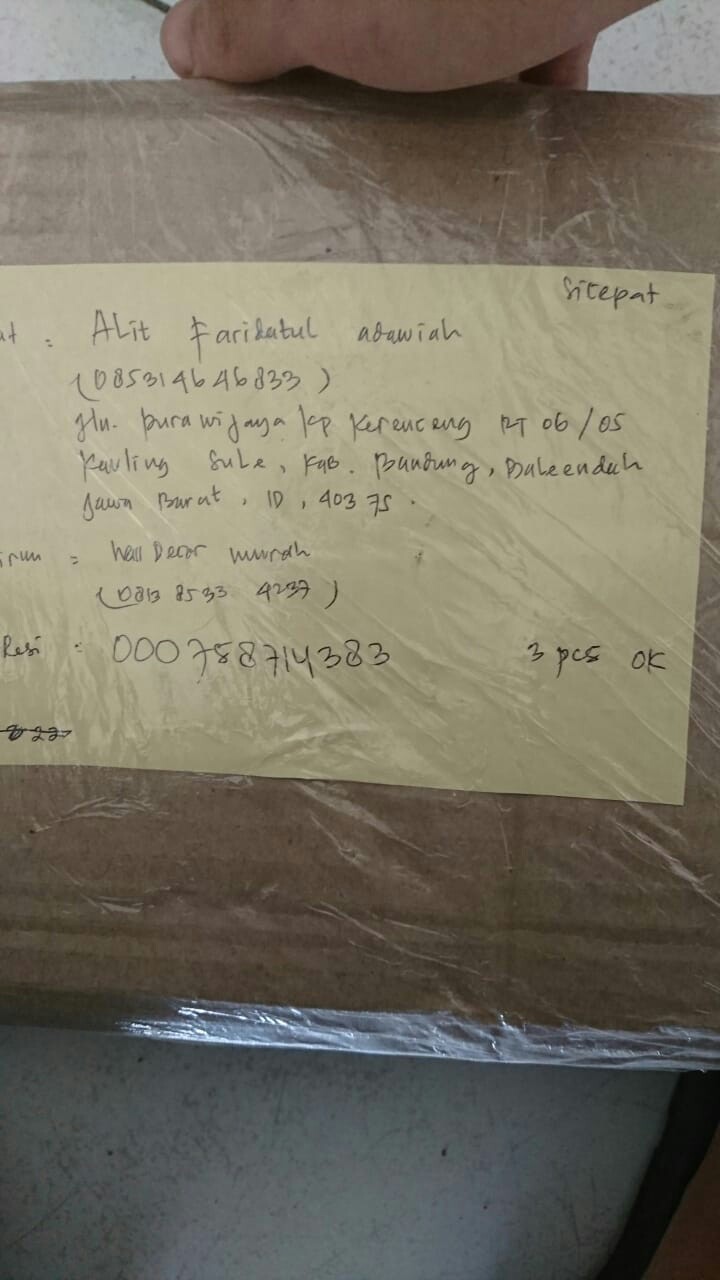 Sicepat
at : Alit Faridatul adawiah
(085314646833)
Jln. purawijaya kp Kerenceng RT 06/05
Kavling Sule, Kab. Bandung, Baleendah
Jawa Barat, ID, 40375.
irim = Wall Decor murah
(0813 8533 4237)
Resi : 000758714383 3 pcs OK